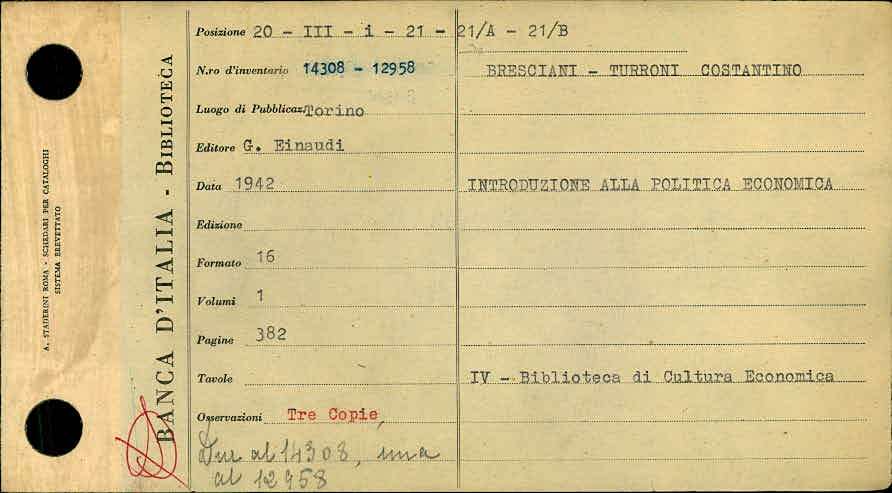 A. STADERINI ROMA - SCHEDARI PER CATALOGHI
SISTEMA BREVETTATO
BANCA D'ITALIA - BIBLIOTECA
Posizione 20 - III - i - 21 - 21/A - 21/B
N.ro d'inventario 14308 - 12958
Luogo di Pubblicaz. Torino
Editore G. Einaudi
Data 1942
Edizione
Formato 16
Volumi 1
Pagine 382
Tavole
Osservazioni Tre Copie
Due al 14308, una
al 12958
BRESCIANI - TURRONI COSTANTINO
INTRODUZIONE ALLA POLITICA ECONOMICA
IV - Biblioteca di Cultura Economica